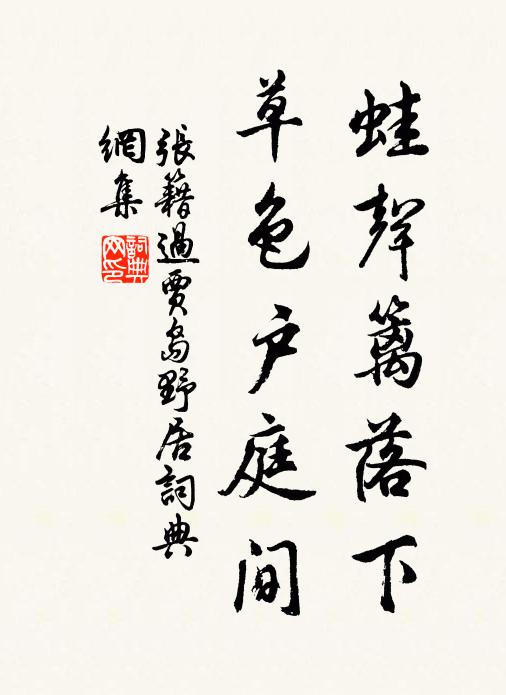 蛙聲籬落下
草色户庭间
張籍過賈島野居詞典
網集
詞典
网印